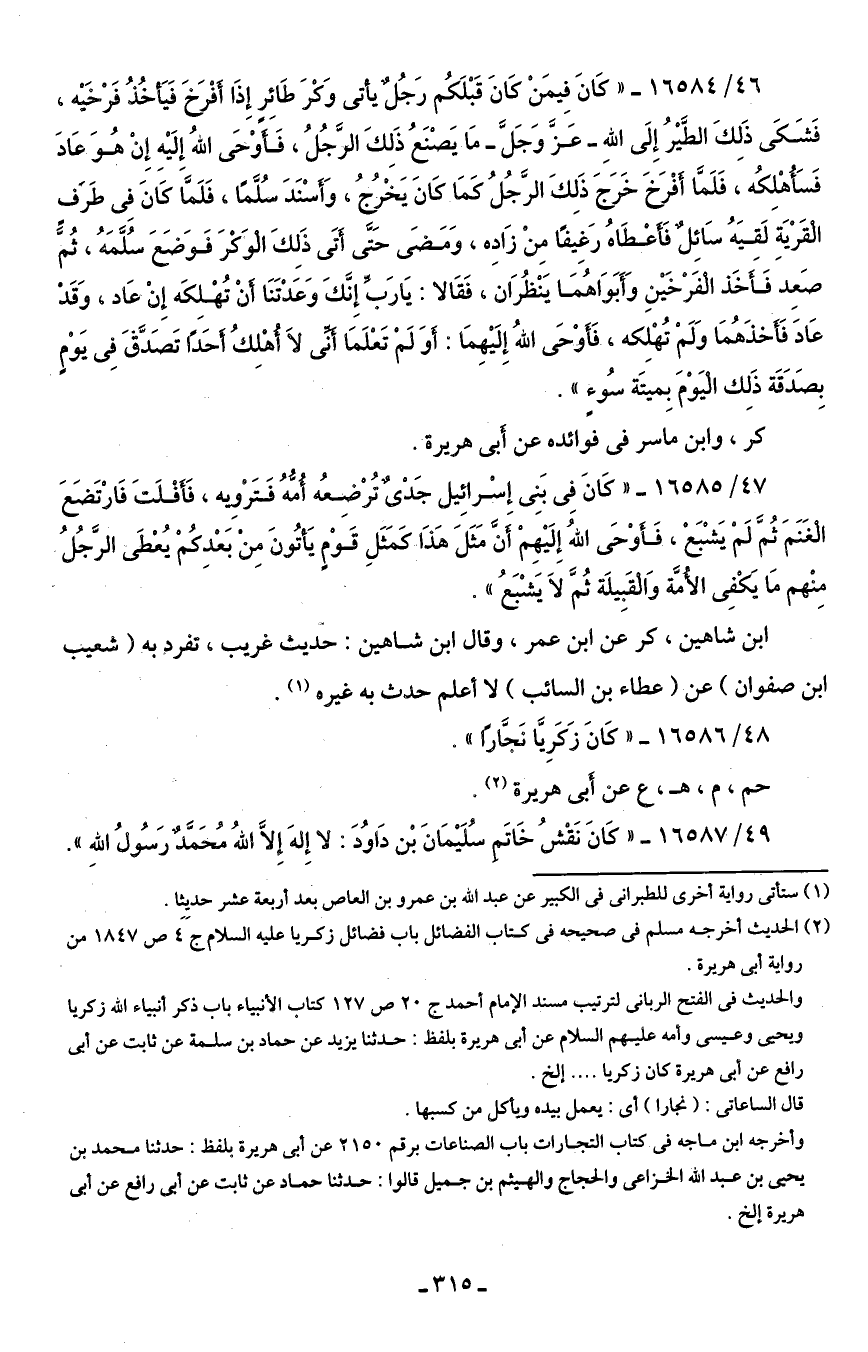 ٤٦/ ١٦٥٨٤ ـ « كَانَ فِيمَنْ كَانَ قَبْلَكُم رَجُلٌ يأتى وَكْرَ طَائِرٍ إِذَا أَفْرَخَ فَيَأخُذُ فَرْخَيْه ،
فَشَكَى ذَلِكَ الطَّيْرُ إِلَى الله ـ عَـزَّ وَجَلَّ ـ مَا يَصْنَعُ ذَلكَ الرَّجُلُ ، فَـأَوْحَى اللهُ إِلَيْهِ إِنْ هُـوَ عَادَ
فَسَأُهْلِكُه ، فَلَمَّا أَفْرَخَ خَرَجَ ذَلكَ الرَّجُلُ كَمَا كَانَ يَخْرُجُ ، وَأَسْنَدَ سُلَّمًا ، فَلَمَّا كَانَ فى طَرَف
الْقَرْيَةِ لَقِيَهُ سَائِلٌ فَأَعْـطَاهُ رَغِيفًا مِنْ زَاده ، وَمَـضَى حَتَّى أَتَى ذَلكَ الْوَكْرَ فَـوَضَعَ سُلَّمَهُ ، ثُمَّ
صَعِد فَـأَخَذ الْفَرْخَيْنِ وَأَبَوَاهُمَـا يَنْظُرَان ، فَقَالا : يَارَبِّ إِنَّكَ وَعَدْتَنَا أَنْ تُهْـلكَه إِنْ عَاد ، وَقَدْ
عَادَ فَأَخذَهُمَا وَلَمْ تُهْلكه ، فَأَوْحَى اللهُ إِلَيْهِمَا : أَوَ لَمْ تَعْلَمَا أَنِّى لاَ أُهْلكُ أَحَدًا تَصَدَّقَ فِى يَوْمٍ
بِصَدَقَة ذَلِك الْيَوْمَ بِمِيتَة سُوءٍ » .
كر ، وابن ماسر فى فوائده عن أَبى هريرة .
٤٧/ ١٦٥٨٥ ـ « كَانَ فِى بَنِى إِسْرائيل جَدْىٌ تُرْضِـعُه أُمُّهُ فَـتَرْوِيه ، فَأَفْـلَتَ فَارْتَضَعَ
الْغَنَمَ ثُمَّ لَمْ يَشْبَعْ ، فَـأَوْحَى اللهُ إِلَيْهِمْ أَنَّ مَثَلَ هَذَا كَمثَلِ قَـوْمٍ يَأْتُونَ مِنْ بَعْدِكُمْ يُعْطَى الرَّجُلُ
مِنْهم مَا يَكْفى الأُمَّة وَالْقَبِيلَة ثُمَّ لاَ يَشْبَعُ » .
ابن شاهين ، كر عن ابن عمر ، وقال ابن شـاهين : حديث غريب ، تفرد به ( شعيب
ابن صفوان ) عن ( عطاء بن السائب ) لا أعلم حدث به غيره (١) .
٤٨/ ١٦٥٨٦ ـ « كَانَ زَكَرِيَّا نَجَّارًا » .
حم ، م ، هـ ، ع عن أَبى هريرة (٢) .
٤٩/ ١٦٥٨٧ ـ « كَانَ نَقْشُ خَاتَمِ سُلَيْمَانَ بْن دَاوُدَ : لا إِلهَ إِلاَّ اللهُ مُحَمَّدٌ رَسُولُ اللهِ ».
(١) ستأتى رواية أخرى للطبرانى فى الكبير عن عبد الله بن عمرو بن العاص بعد أربعة عشر حديثا .
(٢) الحديث أخرجـه مسلم فى صحيحه فى كـتاب الفضائل باب فضائل زكـريا عليه السلام ج ٤ ص ١٨٤٧ من
رواية أبى هريرة .
والحديث فى الفتح الربانى لترتيب مسند الإمام أحمد ج ٢٠ ص ١٢٧ كتاب الأنبياء باب ذكر أنبياء الله زكريا
ويحيى وعيـسى وأمه عليـهم السلام عن أبى هريرة بلفظ : حـدثنا يزيد عن حماد بن سلـمة عن ثابت عن أبى
رافع عن أبى هريرة كان زكريا .... إلخ .
قال الساعاتى : ( نجارا ) أى : يعمل بيده ويأكل من كسبها .
وأخرجه ابن مـاجه فى كتاب التجـارات باب الصناعات برقم ٢١٥٠ عن أبى هريرة بلفظ : حدثنا محـمد بن
يحيى بن عـبد الله الخـزاعى والحجاج والهيثم بن جـميل قالوا : حـدثنا حمـاد عن ثابت عن أبى رافع عن أبى
هريرة إلخ .
ـ ٣١٥ ـ